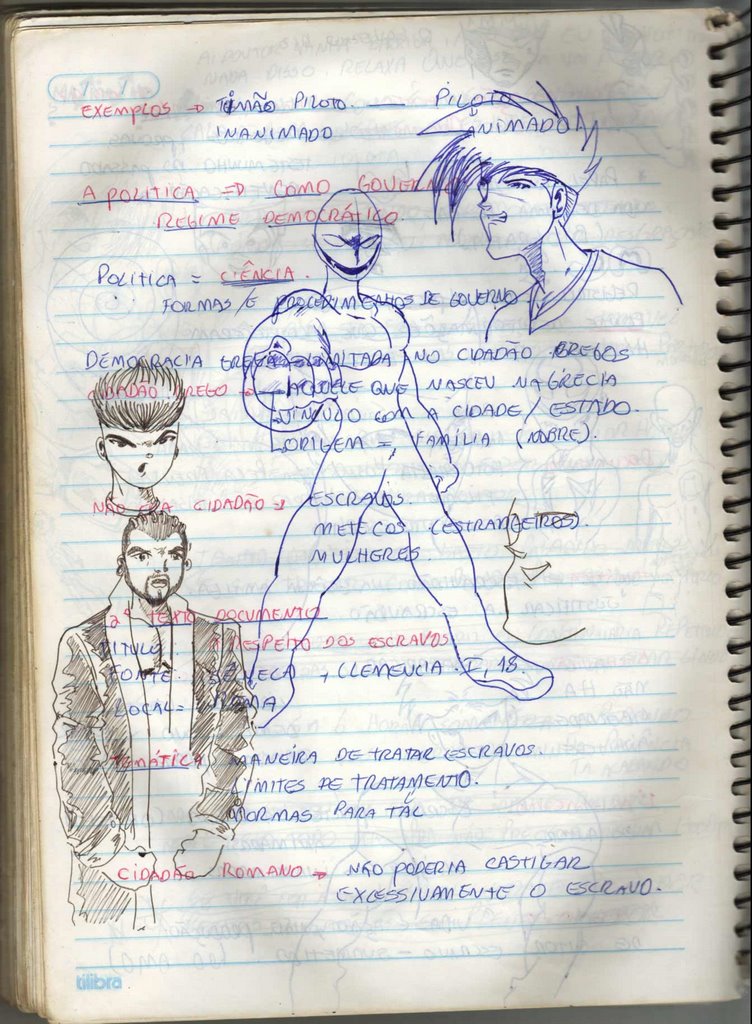 EXEMPLOS → TIMÃO PILOTO. — PILOTO
INANIMADO ANIMADO
A POLITICA => COMO GOVERNA
REGIME DEMOCRÁTICO.
POLITICA = CIÊNCIA.
FORMAS/E PROCEDIMENTOS DE GOVERNO
DEMOCRACIA GREGA LIMITADA NO CIDADÃO GREGOS
CIDADÃO GREGO AQUELE QUE NASCEU NA GRÉCIA
VÍNCULO COM A CIDADE/ESTADO.
ORIGEM = FAMÍLIA (NOBRE).
NÃO ERA CIDADÃO → ESCRAVOS.
METECOS (ESTRANGEIROS).
MULHERES
2º TEXTO DOCUMENTO
TITULO: A RESPEITO DOS ESCRAVOS
FONTE: SÊNECA, CLEMENCIA. I, 18.
LOCAL= ROMA
TEMÁTICA MANEIRA DE TRATAR ESCRAVOS.
LIMITES DE TRATAMENTO.
NORMAS PARA TAL
CIDADÃO ROMANO → NÃO PODERIA CASTIGAR
EXCESSIVAMENTE O ESCRAVO.
tilibra